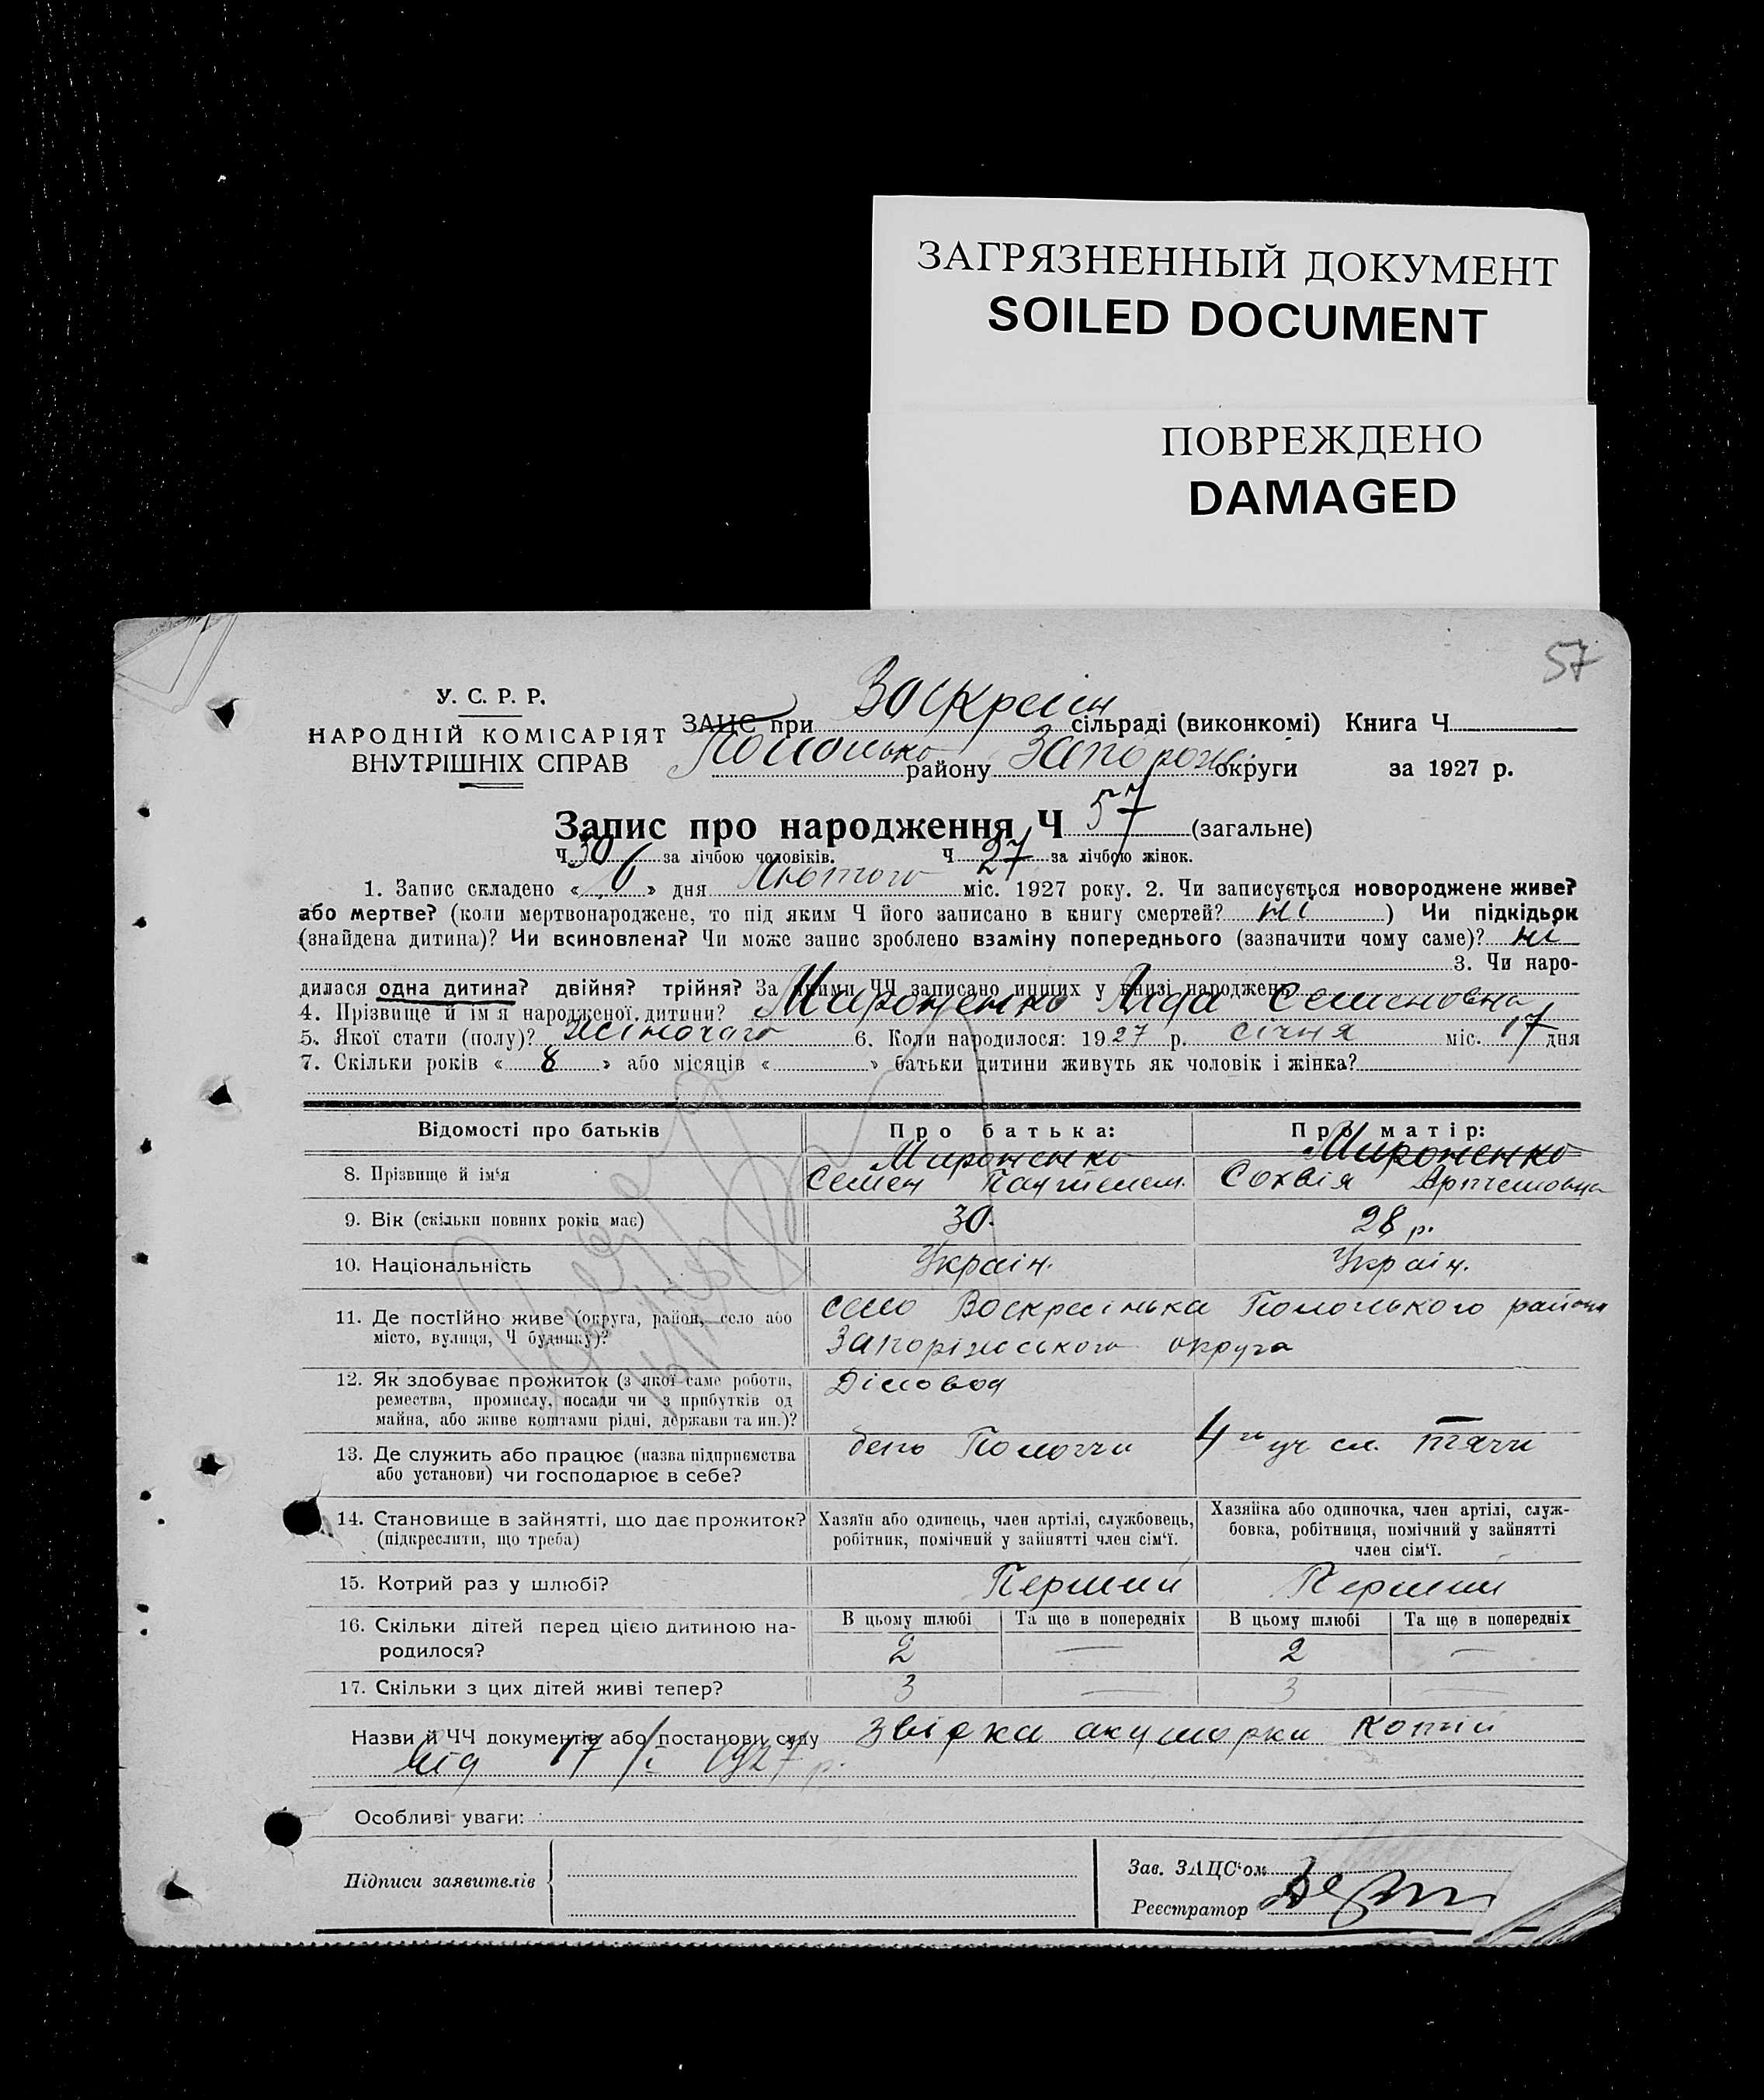 ЗАГРЯЗНЕННЫЙ ДОКУМЕНТ
SOILED DOCUMENT
ПОВРЕЖДЕНО
DAMAGED
57
У. С. Р. Р.
НАРОДНІЙ КОМІСАРІЯТ
ВНУТРІШНІХ СПРАВ
ЗАЦС при сільраді (виконкомі) Книга Ч
району округи за 1927 р.
Запис про народження Ч 57 (загальне)
Ч 30 за лічбою чоловіків. Ч 27 за лічбою жінок.
1. Запис складено « 6 » дня Лютого міс. 1927 року. 2. Чи записується новороджене живе?
або мертве? (коли мертвонароджене, то під яким Ч його записано в книгу смертей? ні ) Чи підкідьок
(знайдена дитина)? Чи всиновлена? Чи може запис зроблено взаміну попереднього (зазначити чому саме)? ні
3. Чи наро-
дилася одна дитина? двійня? трійня? За якими ЧЧ записано инших у книзі народжень
4. Прізвище й ім'я народженої дитини? Мироненко Ліда Семеновна
5. Якої стати (полу)? жіночого 6. Коли народилося: 1927 р. січня міс. 17 дня
7. Скільки років « 8 » або місяців « » батьки дитини живуть як чоловік і жінка?
Відомості про батьків Про батька: Про матір:
8. Прізвище й ім'я Мироненко Семен Мироненко Сохвія Артемовна
9. Вік (скільки повних років має) 30. 28 р.
10. Національність Україн. Україн.
11. Де постійно живе (округа, район, село або село Воскресінька Пологського района
місто, вулиця, Ч будинку)? Запоріжського округа
12. Як здобуває прожиток (з якої саме роботи, Діловод
ремества, промислу, посади чи з прибутків од
майна, або живе коштами рідні, держави та ин.)?
13. Де служить або працює (назва підприємства депо Пологи
або установи) чи господарює в себе?
14. Становище в зайнятті, що дає прожиток? Хазяїн або одинець, член артілі, службовець, Хазяйка або одиночка, член артілі, служ-
(підкреслити, що треба) робітник, помічний у зайнятті член сім'ї. бовка, робітниця, помічний у зайнятті
член сім'ї.
15. Котрий раз у шлюбі? Перший Перший
16. Скільки дітей перед цією дитиною на- В цьому шлюбі Та ще в попередніх В цьому шлюбі Та ще в попередніх
родилося? 2 — 2 —
17. Скільки з цих дітей живі тепер? 3 — 3 —
Назви й ЧЧ документів або постанови суду акушорки
від 17/I 1927 р.
Особливі уваги:
Підписи заявителів
Зав. ЗАЦС'ом
Реєстратор